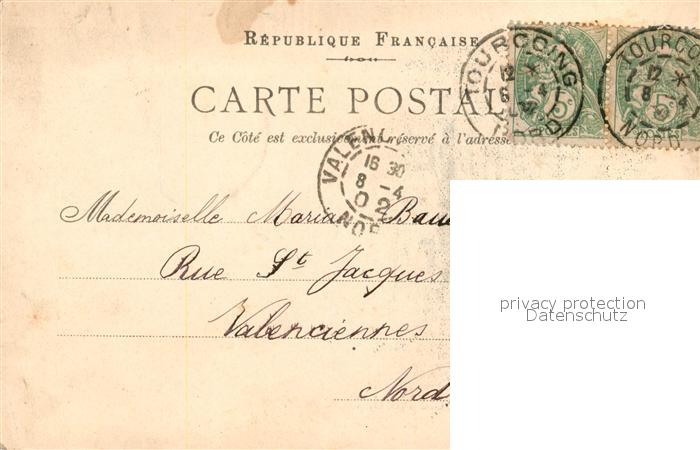 RÉPUBLIQUE FRANÇAISE
CARTE POSTAL
Ce Côté est exclusivement réservé à l'adresse
TOURCOING
12
NORD
TOURCO
12
8 4
NORD
VALEN
16 30
8 -4
02
NOR
Mademoiselle
Rue St Jacques
Valenciennes
Nord
privacy protection
Datenschutz